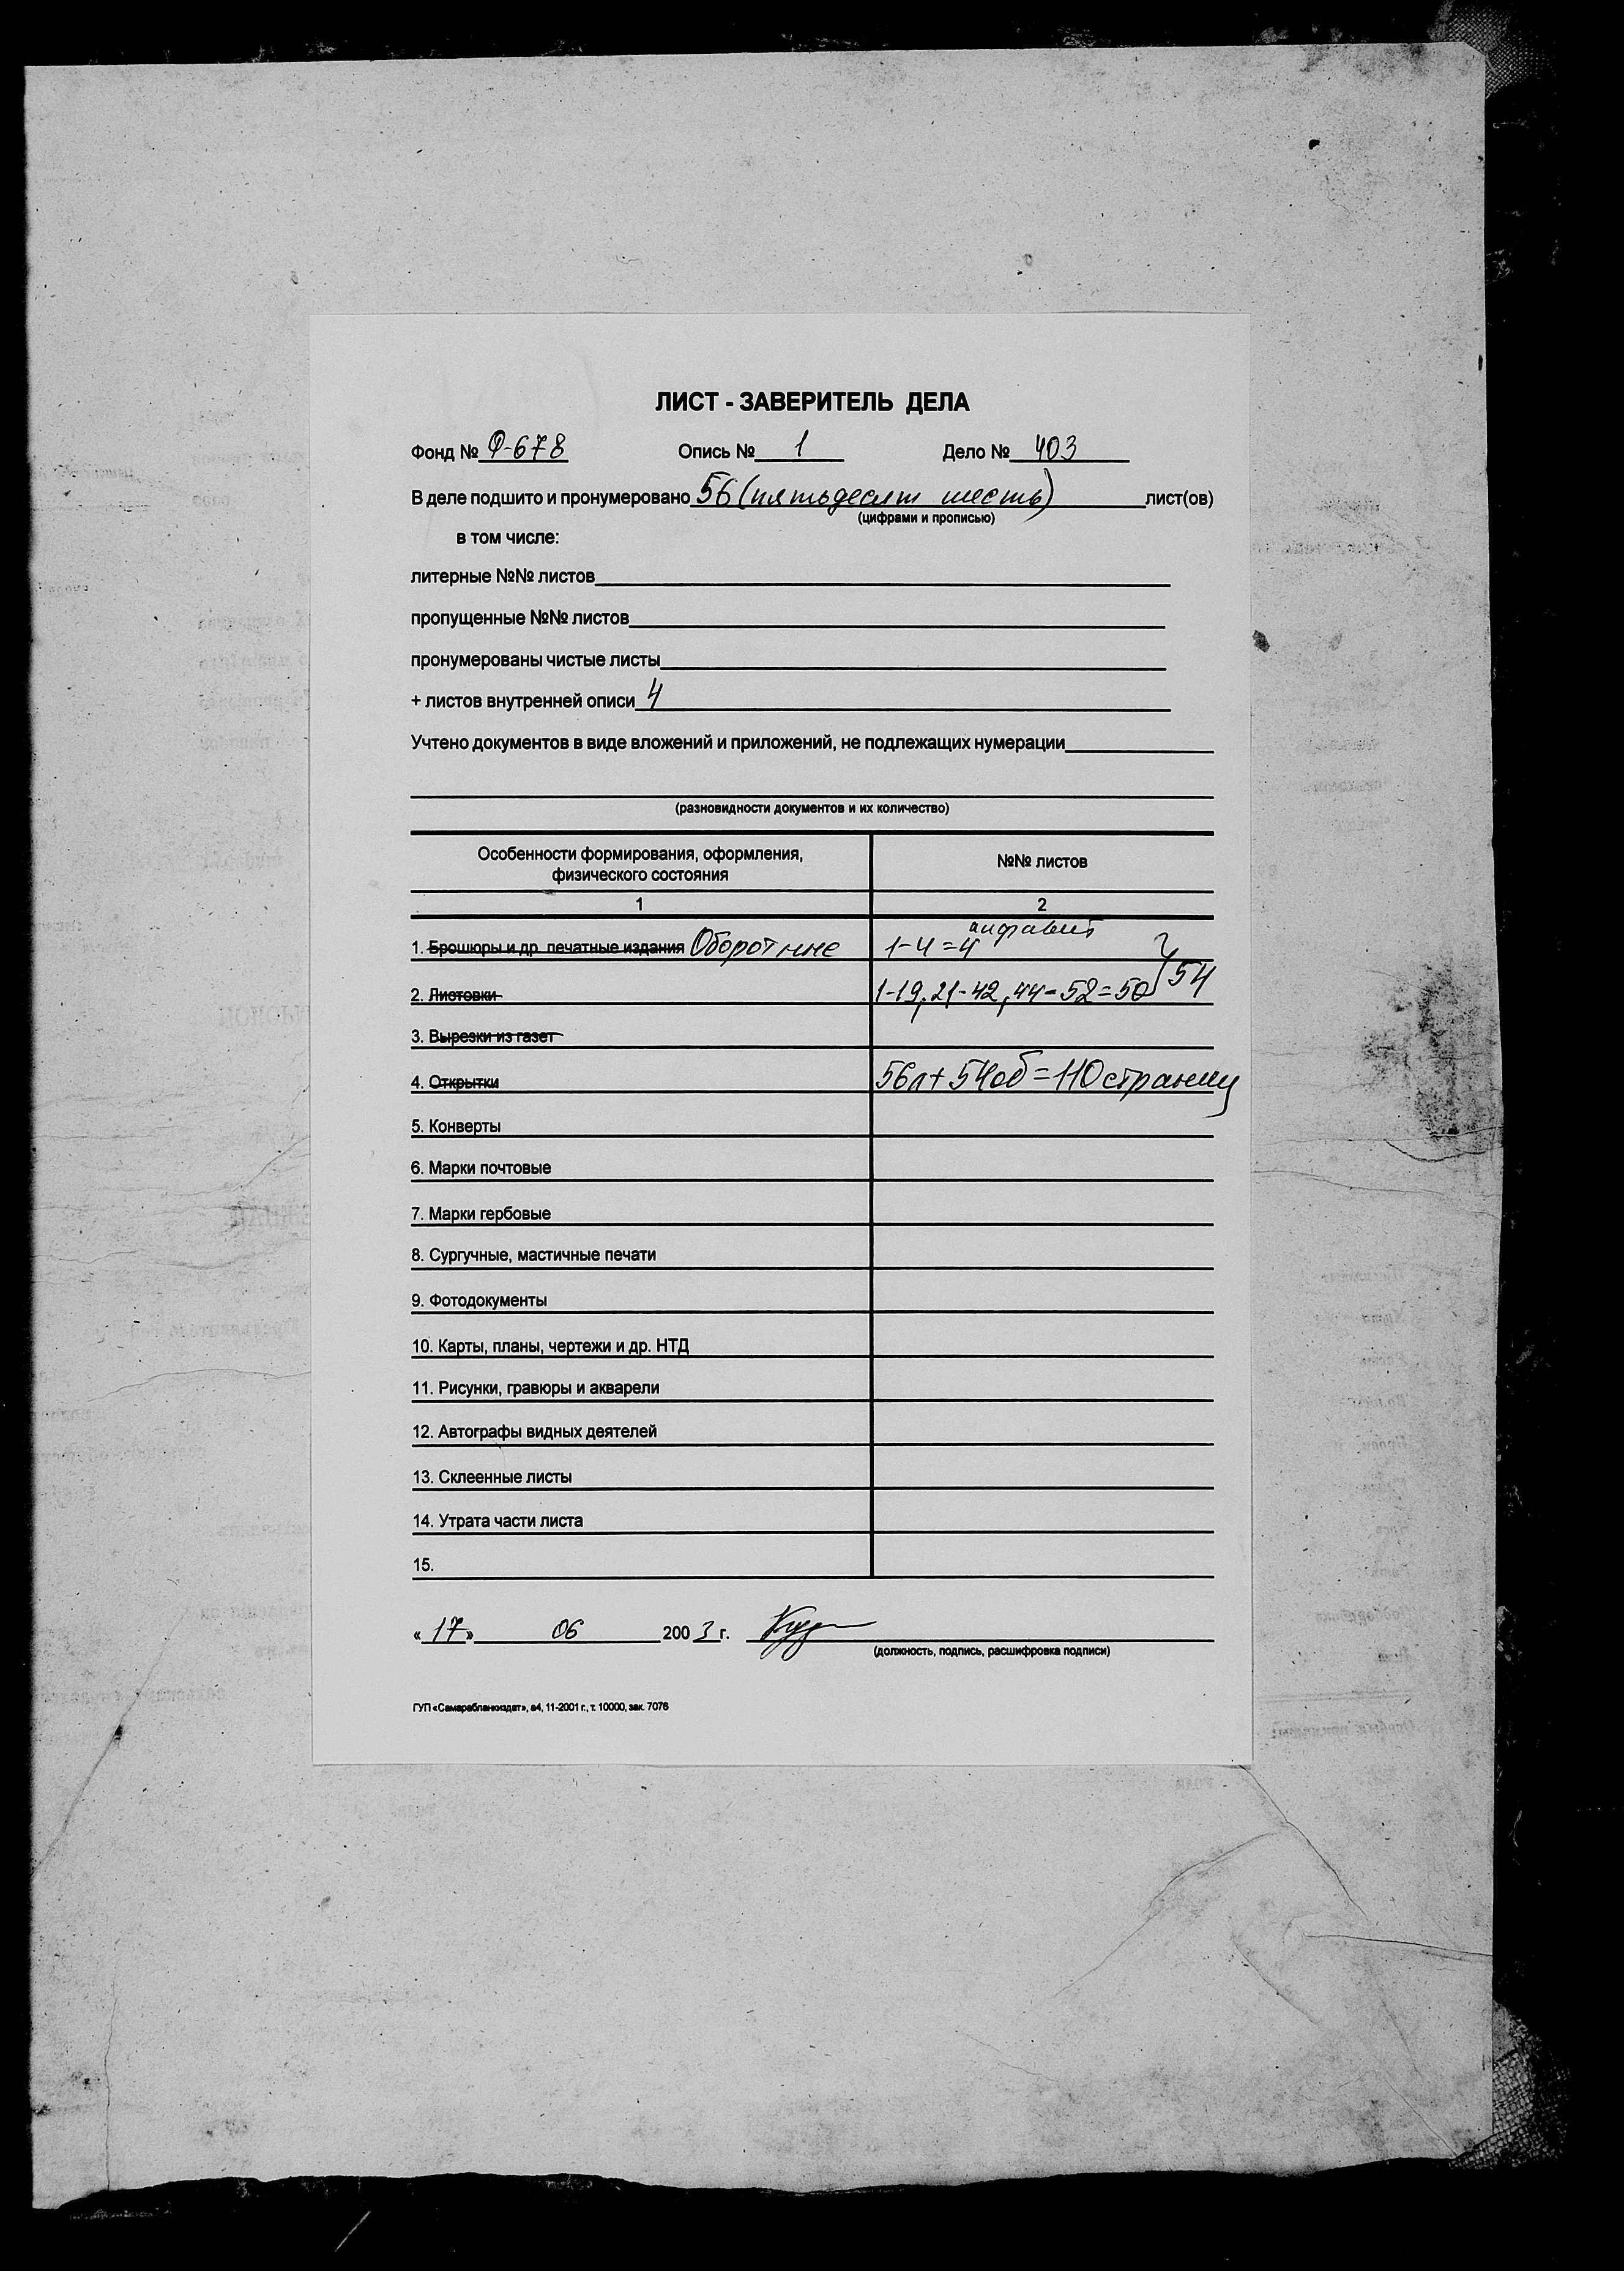 ЛИСТ - ЗАВЕРИТЕЛЬ ДЕЛА
Фонд № Ф-678 Опись № 1 Дело № 403
В деле подшито и пронумеровано 56 (пятьдесят шесть) лист(ов)
(цифрами и прописью)
в том числе:
литерные №№ листов
пропущенные №№ листов
пронумерованы чистые листы
+ листов внутренней описи 4
Учтено документов в виде вложений и приложений, не подлежащих нумерации
(разновидности документов и их количество)
Особенности формирования, оформления, №№ листов
физического состояния
1 2
алфавит
1. Брошюры и др. печатные издания Оборотные 1-4=4
2. Листовки 1-19, 21-42, 44-52=50 } 54
3. Вырезки из газет
4. Открытки 56л+54об=110 страниц
5. Конверты
6. Марки почтовые
7. Марки гербовые
8. Сургучные, мастичные печати
9. Фотодокументы
10. Карты, планы, чертежи и др. НТД
11. Рисунки, гравюры и акварели
12. Автографы видных деятелей
13. Склеенные листы
14. Утрата части листа
15.
«17» 06 2003 г.
(должность, подпись, расшифровка подписи)
ГУП «Самарабланкиздат», а4, 11-2001 г., т. 10000, зак. 7076